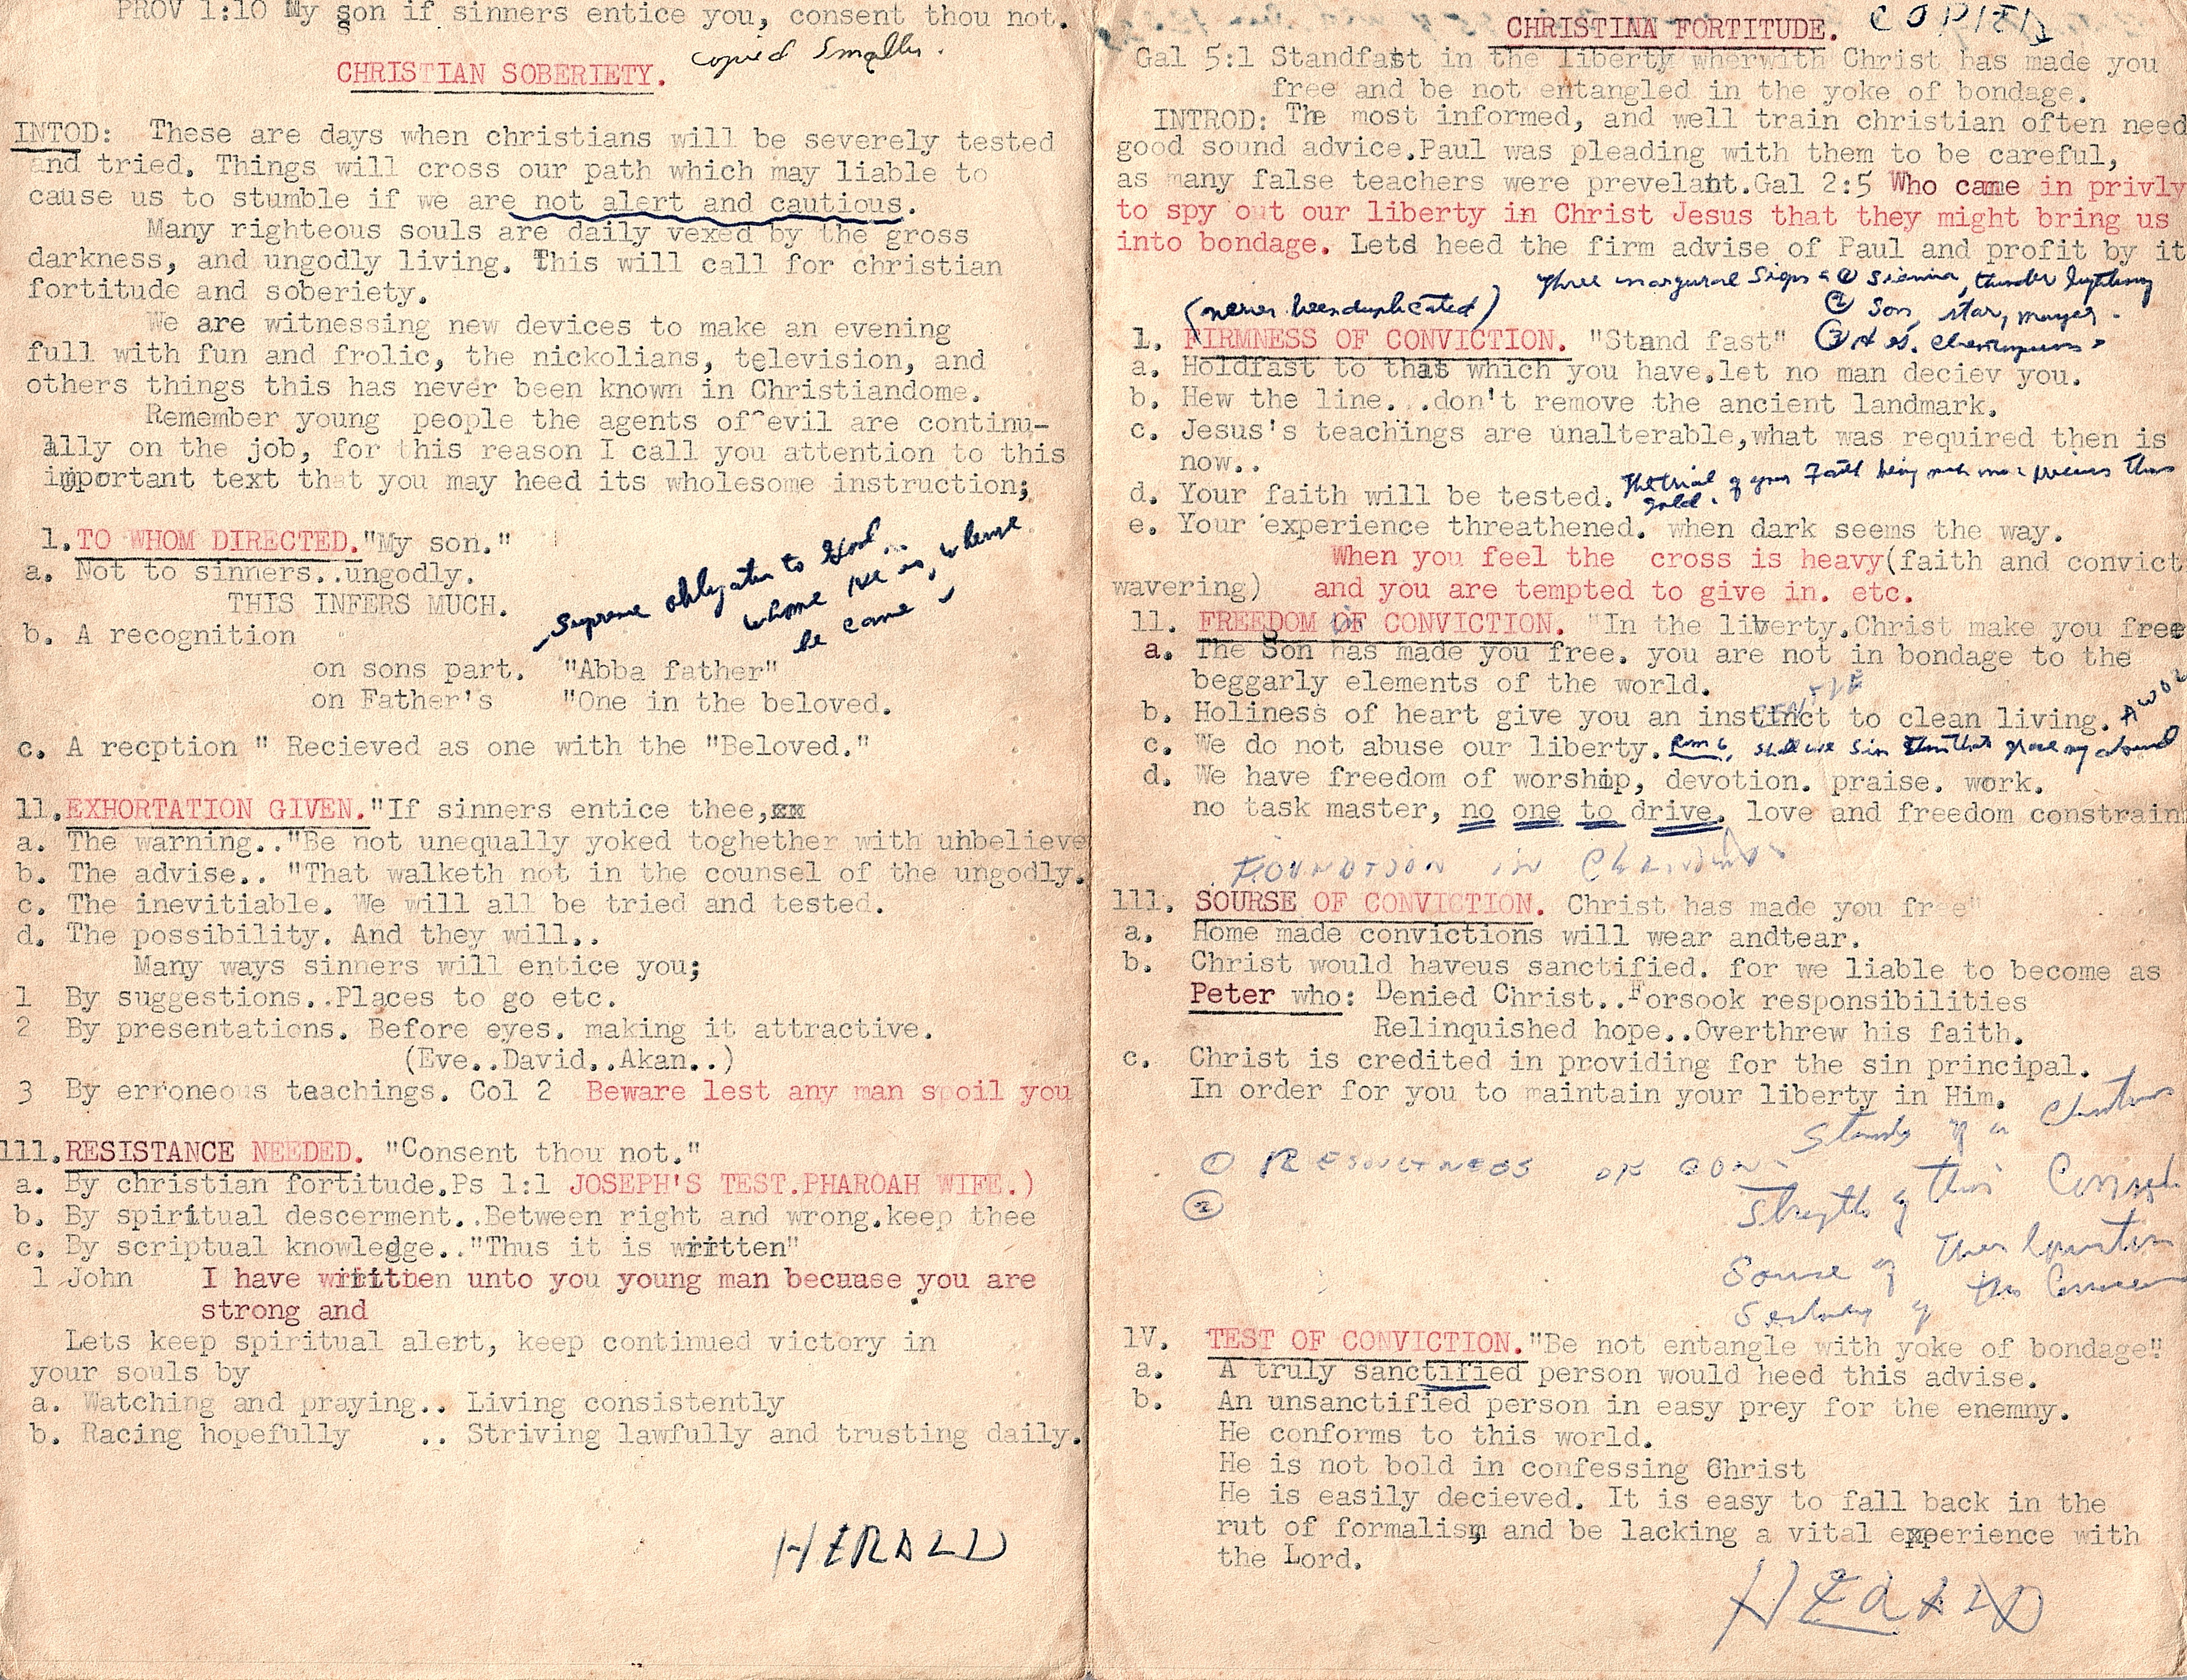 PROV 1:10 My son if sinners entice you, consent thou not.
copied Smaller.
CHRISTIAN SOBERIETY.
INTOD: These are days when christians will be severely tested
and tried. Things will cross our path which may liable to
cause us to stumble if we are not alert and cautious.
Many righteous souls are daily vexed by the gross
darkness, and ungodly living. This will call for christian
fortitude and soberiety.
We are witnessing new devices to make an evening
full with fun and frolic, the nickolians, television, and
others things this has never been known in Christiandome.
Remember young people the agents of evil are continu-
ally on the job, for this reason I call you attention to this
important text that you may heed its wholesome instruction;
1. TO WHOM DIRECTED. "My son."
a. Not to sinners..ungodly.
THIS INFERS MUCH.
Supreme obligation to God...
whome He is, whense
he came
b. A recognition
on sons part. "Abba father"
on Father's "One in the beloved.
c. A recption " Recieved as one with the "Beloved."
11. EXHORTATION GIVEN. "If sinners entice thee,xx
a. The warning.."Be not unequally yoked toghether with unbelieve
b. The advise.. "That walketh not in the counsel of the ungodly.
c. The inevitiable. We will all be tried and tested.
d. The possibility. And they will..
Many ways sinners will entice you;
1 By suggestions..Places to go etc.
2 By presentations. Before eyes. making it attractive.
(Eve..David..Akan..)
3 By erroneous teachings. Col 2 Beware lest any man spoil you
111. RESISTANCE NEEDED. "Consent thou not."
a. By christian fortitude.Ps 1:1 JOSEPH'S TEST.PHAROAH WIFE.)
b. By spiritual descerment..Between right and wrong.keep thee
c. By scriptual knowledge.."Thus it is written"
1 John I have written unto you young man becuase you are
strong and
Lets keep spiritual alert, keep continued victory in
your souls by
a. Watching and praying.. Living consistently
b. Racing hopefully .. Striving lawfully and trusting daily.
HERALD
CHRISTINA FORTITUDE. COPIED
Gal 5:1 Standfast in the liberty wherwith Christ has made you
free and be not entangled in the yoke of bondage.
INTROD: The most informed, and well train christian often need
good sound advice.Paul was pleading with them to be careful,
as many false teachers were prevelant.Gal 2:5 Who came in privly
to spy out our liberty in Christ Jesus that they might bring us
into bondage. Lets heed the firm advise of Paul and profit by it
Three inaugural Signs ① thunder lightning
(never been duplicated) ② Son, star,
③ H S.
1. FIRMNESS OF CONVICTION. "Stand fast"
a. Holdfast to that which you have.let no man deciev you.
b. Hew the line...don't remove the ancient landmark.
c. Jesus's teachings are unalterable,what was required then is
now..
d. Your faith will be tested. The trial of your Faith being much more precious than
gold.
e. Your experience threathened. when dark seems the way.
When you feel the cross is heavy(faith and convict
wavering) and you are tempted to give in. etc.
11. FREEDOM OF CONVICTION. "In the liberty.Christ make you free
a. The Son has made you free. you are not in bondage to the
beggarly elements of the world.
b. Holiness of heart give you an instinct to clean living.
c. We do not abuse our liberty. Rom 6, shall we sin that grace may abound
d. We have freedom of worship, devotion. praise. work.
no task master, no one to drive. love and freedom constrain
FOUNDTION IN
111. SOURSE OF CONVICTION. Christ has made you free"
a. Home made convictions will wear andtear.
b. Christ would haveus sanctified. for we liable to become as
Peter who: Denied Christ..Forsook responsibilities
Relinquished hope..Overthrew his faith.
c. Christ is credited in providing for the sin principal.
In order for you to maintain your liberty in Him.
of a Christian
① OF CON
Strength of this
②
Sourse of
of this
1V. TEST OF CONVICTION. "Be not entangle with yoke of bondage"
a. A truly sanctified person would heed this advise.
b. An unsanctified person in easy prey for the enemny.
He conforms to this world.
He is not bold in confessing Christ
He is easily decieved. It is easy to fall back in the
rut of formalism and be lacking a vital experience with
the Lord.
HERALD